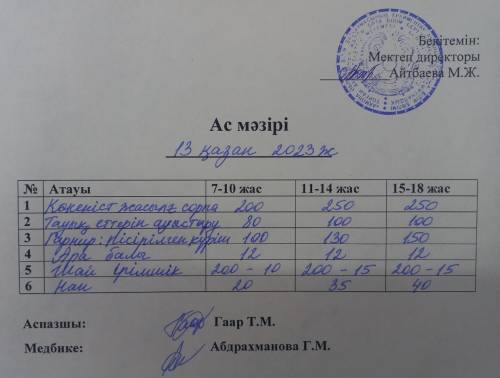 Бекітемін:
Мектеп директоры
Айтбаева М.Ж.
Ас мәзірі
13 қазан 2023ж
№ Атауы 7-10 жас 11-14 жас 15-18 жас
1 Көкөніст жасалғ сорпа 200 250 250
2 Тауық еттерін ауыстыру 80 100 100
3 Гарнир: пісірілген күріш 100 130 150
4 Ара балы 12 12 12
5 Шай ірімшік 200-10 200-15 200-15
6 Нан 20 35 40
Аспазшы: Гаар Т.М.
Медбике: Абдрахманова Г.М.